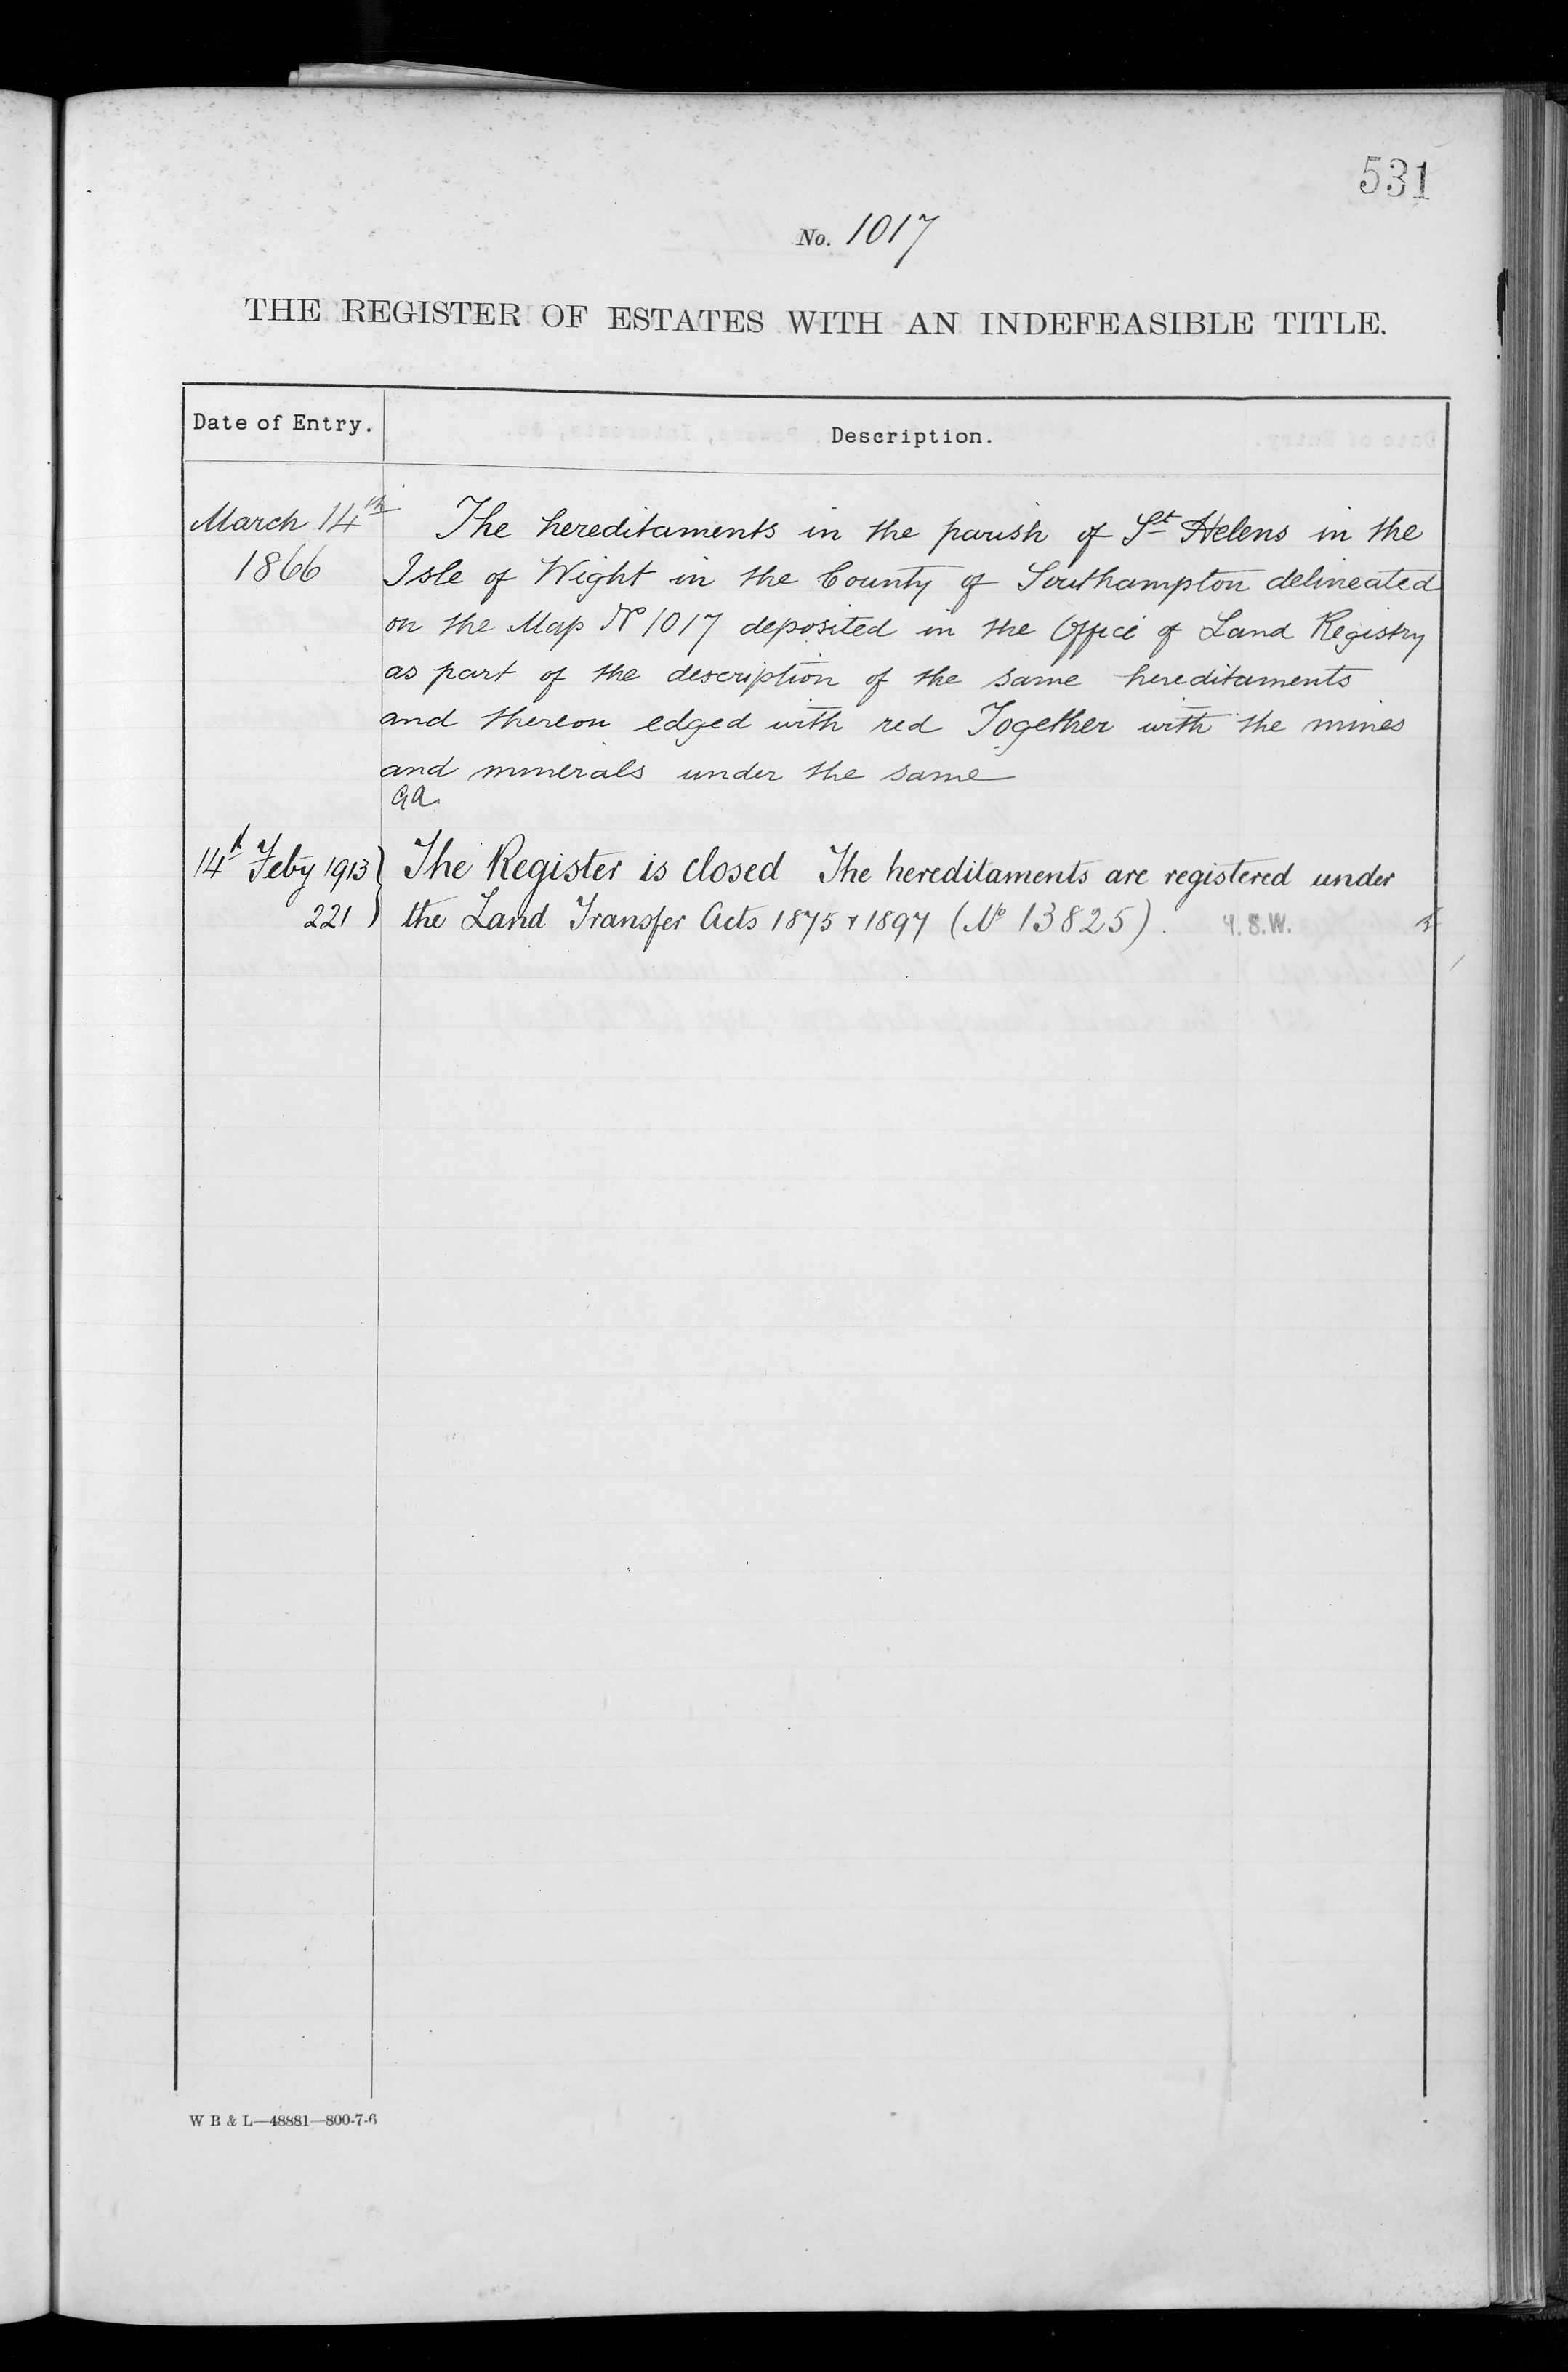 531
No. 1017
THE REGISTER OF ESTATES WITH AN INDEFEASIBLE TITLE.
Date of Entry. Description.
March 14th The hereditaments in the parish of St Helens in the
1866 Isle of Wight in the County of Southampton delineated
on the Map No 1017 deposited in the Office of Land Registry
as part of the description of the same hereditaments
and thereon edged with red Together with the mines
and minerals under the same
GA.
14th Feby 1913 The Register is closed The hereditaments are registered under
221 the Land Transfer Acts 1875 & 1897 (No 13825). S.W.
W B & L—48881—800-7-6